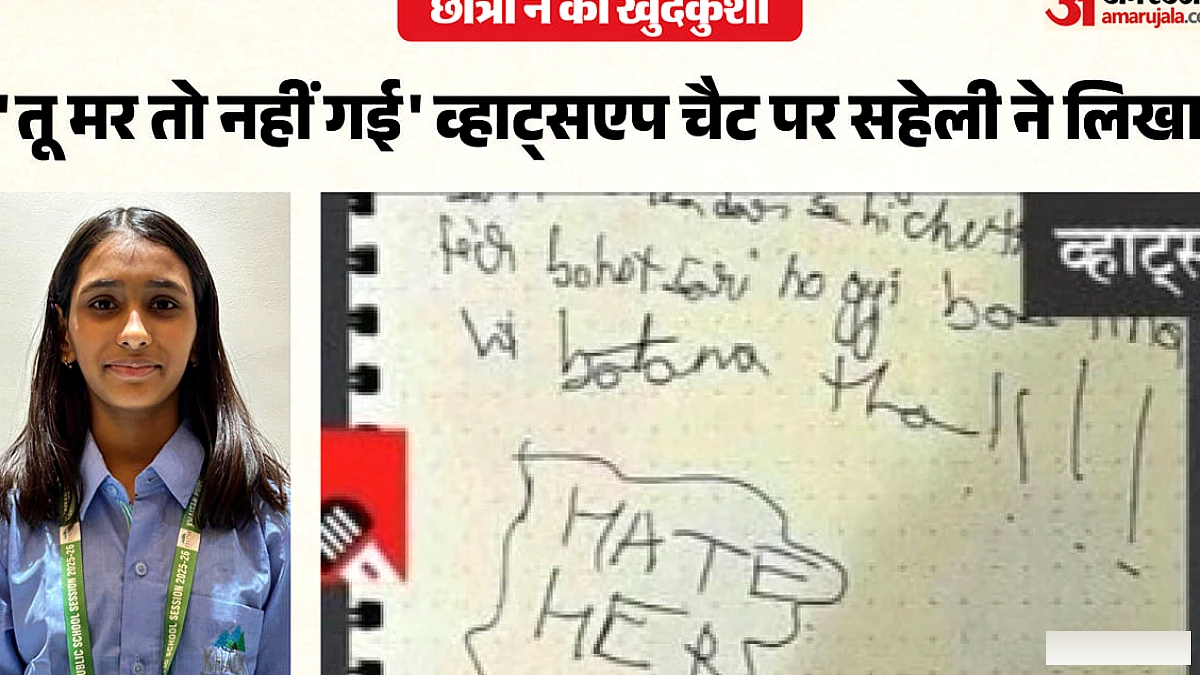 छात्रा ने की खुदकुशी
amarujala.co
'तू मर तो नहीं गई' व्हाट्सएप चैट पर सहेली ने लिखा
व्हाट्स
se hi
bohot sari ho gyi
hi batana tha!!!!
HATE
HER
PUBLIC SCHOOL SESSION 2025-26
SCHOOL SESSION 2025-26